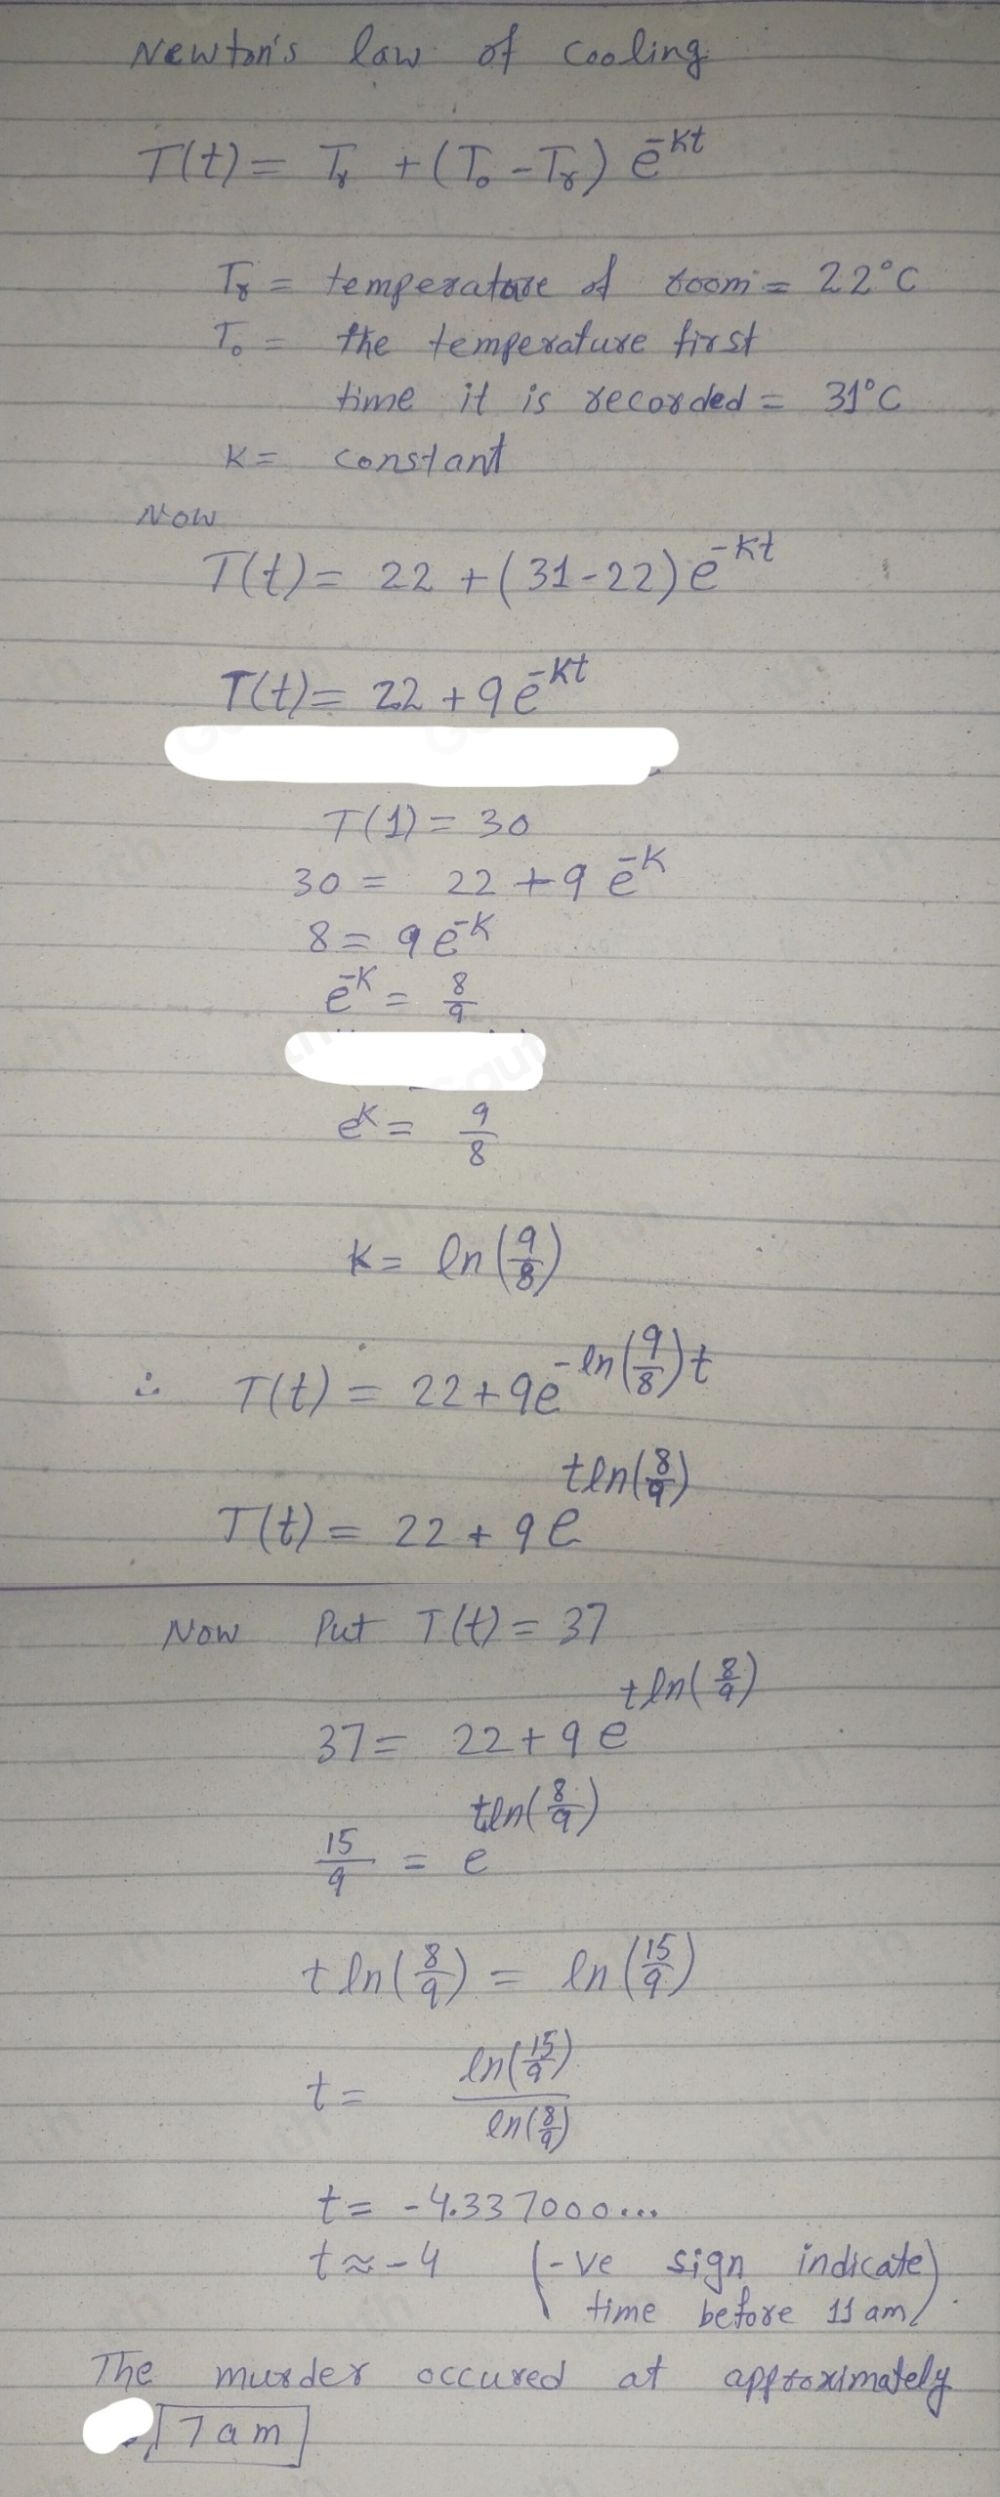 Newton's law of cooling
T(t) = Tr + (T₀ - Tr) e^-Kt
Tr = temperature of room = 22°C
T₀ = the temperature first
time it is recorded = 31°C
K = constant
Now
T(t) = 22 + (31-22) e^-Kt
T(t) = 22 + 9 e^-Kt
T(1) = 30
30 = 22 + 9 e^-K
8 = 9 e^-K
e^-K = 8/9
e^K = 9/8
K = ln(9/8)
∴ T(t) = 22 + 9e^-ln(9/8)t
T(t) = 22 + 9 e^tln(8/9)
Now Put T(t) = 37
37 = 22 + 9 e^tln(8/9)
15/9 = e^tln(8/9)
t ln(8/9) = ln(15/9)
t = ln(15/9)/ln(8/9)
t = -4.337000...
t ≈ -4 (-ve sign indicate
time before 11 am)
The murder occured at approximately
7 am